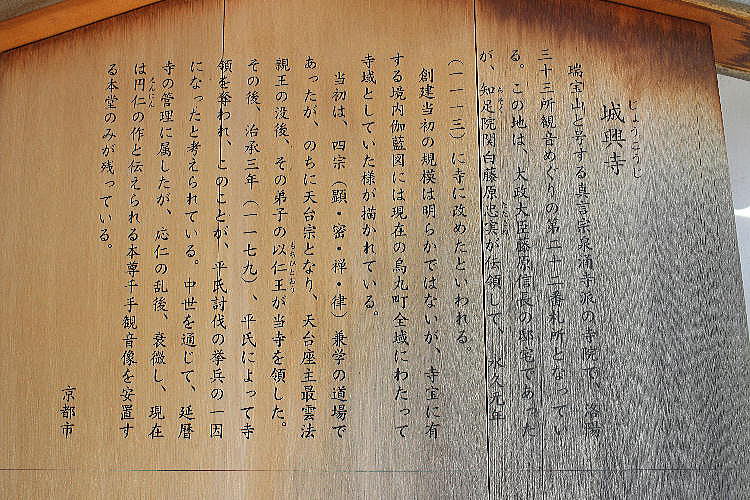 じょうこうじ
城興寺
瑞宝山と号する真言宗泉涌寺派の寺院で、洛陽
三十三所観音めぐりの第二十二番札所となってい
る。この地は、太政大臣藤原信長の邸宅であった
が、知足院関白藤原忠実が伝領して、永久元年
(一一一三)に寺に改めたといわれる。
創建当初の規模は明らかではないが、寺宝に有
する境内伽藍図には現在の烏丸町全域にわたって
寺域としていた様が描かれている。
当初は、四宗(顕・密・禅・律)兼学の道場で
あったが、のちに天台宗となり、天台座主最雲法
親王の没後、その弟子の以仁王が当寺を領した。
その後、治承三年(一一七九)、平氏によって寺
領を奪われ、このことが、平氏討伐の挙兵の一因
になったと考えられている。中世を通じて、延暦
寺の管理に属したが、応仁の乱後、衰微し、現在
は円仁の作と伝えられる本尊千手観音像を安置す
る本堂のみが残っている。
京都市